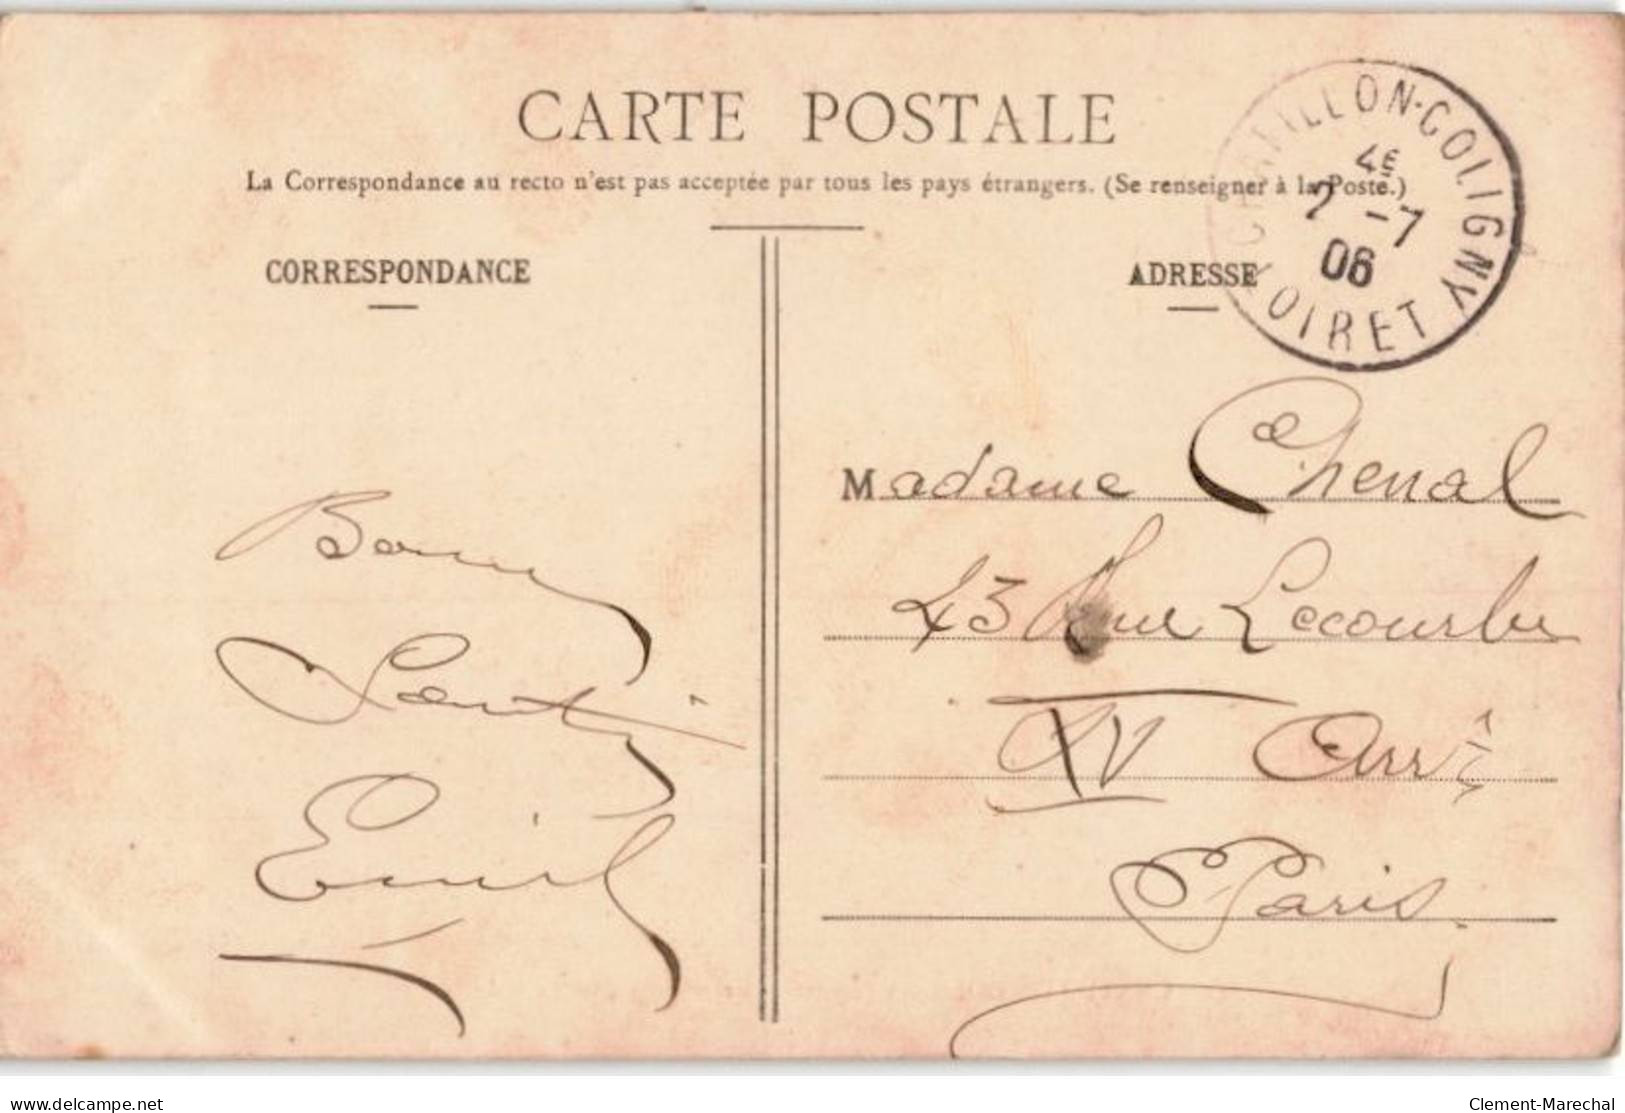 CARTE POSTALE
La Correspondance au recto n'est pas acceptée par tous les pays étrangers. (Se renseigner à la Poste.)
CORRESPONDANCE
ADRESSE
CHATILLON-COLIGNY
4E
2 -7
06
LOIRET
Bonne
Santé
Emil
Madame Chenal
43 Rue Lecourbe
XV Arrt
Paris
delcampe.net
Clement-Marechal